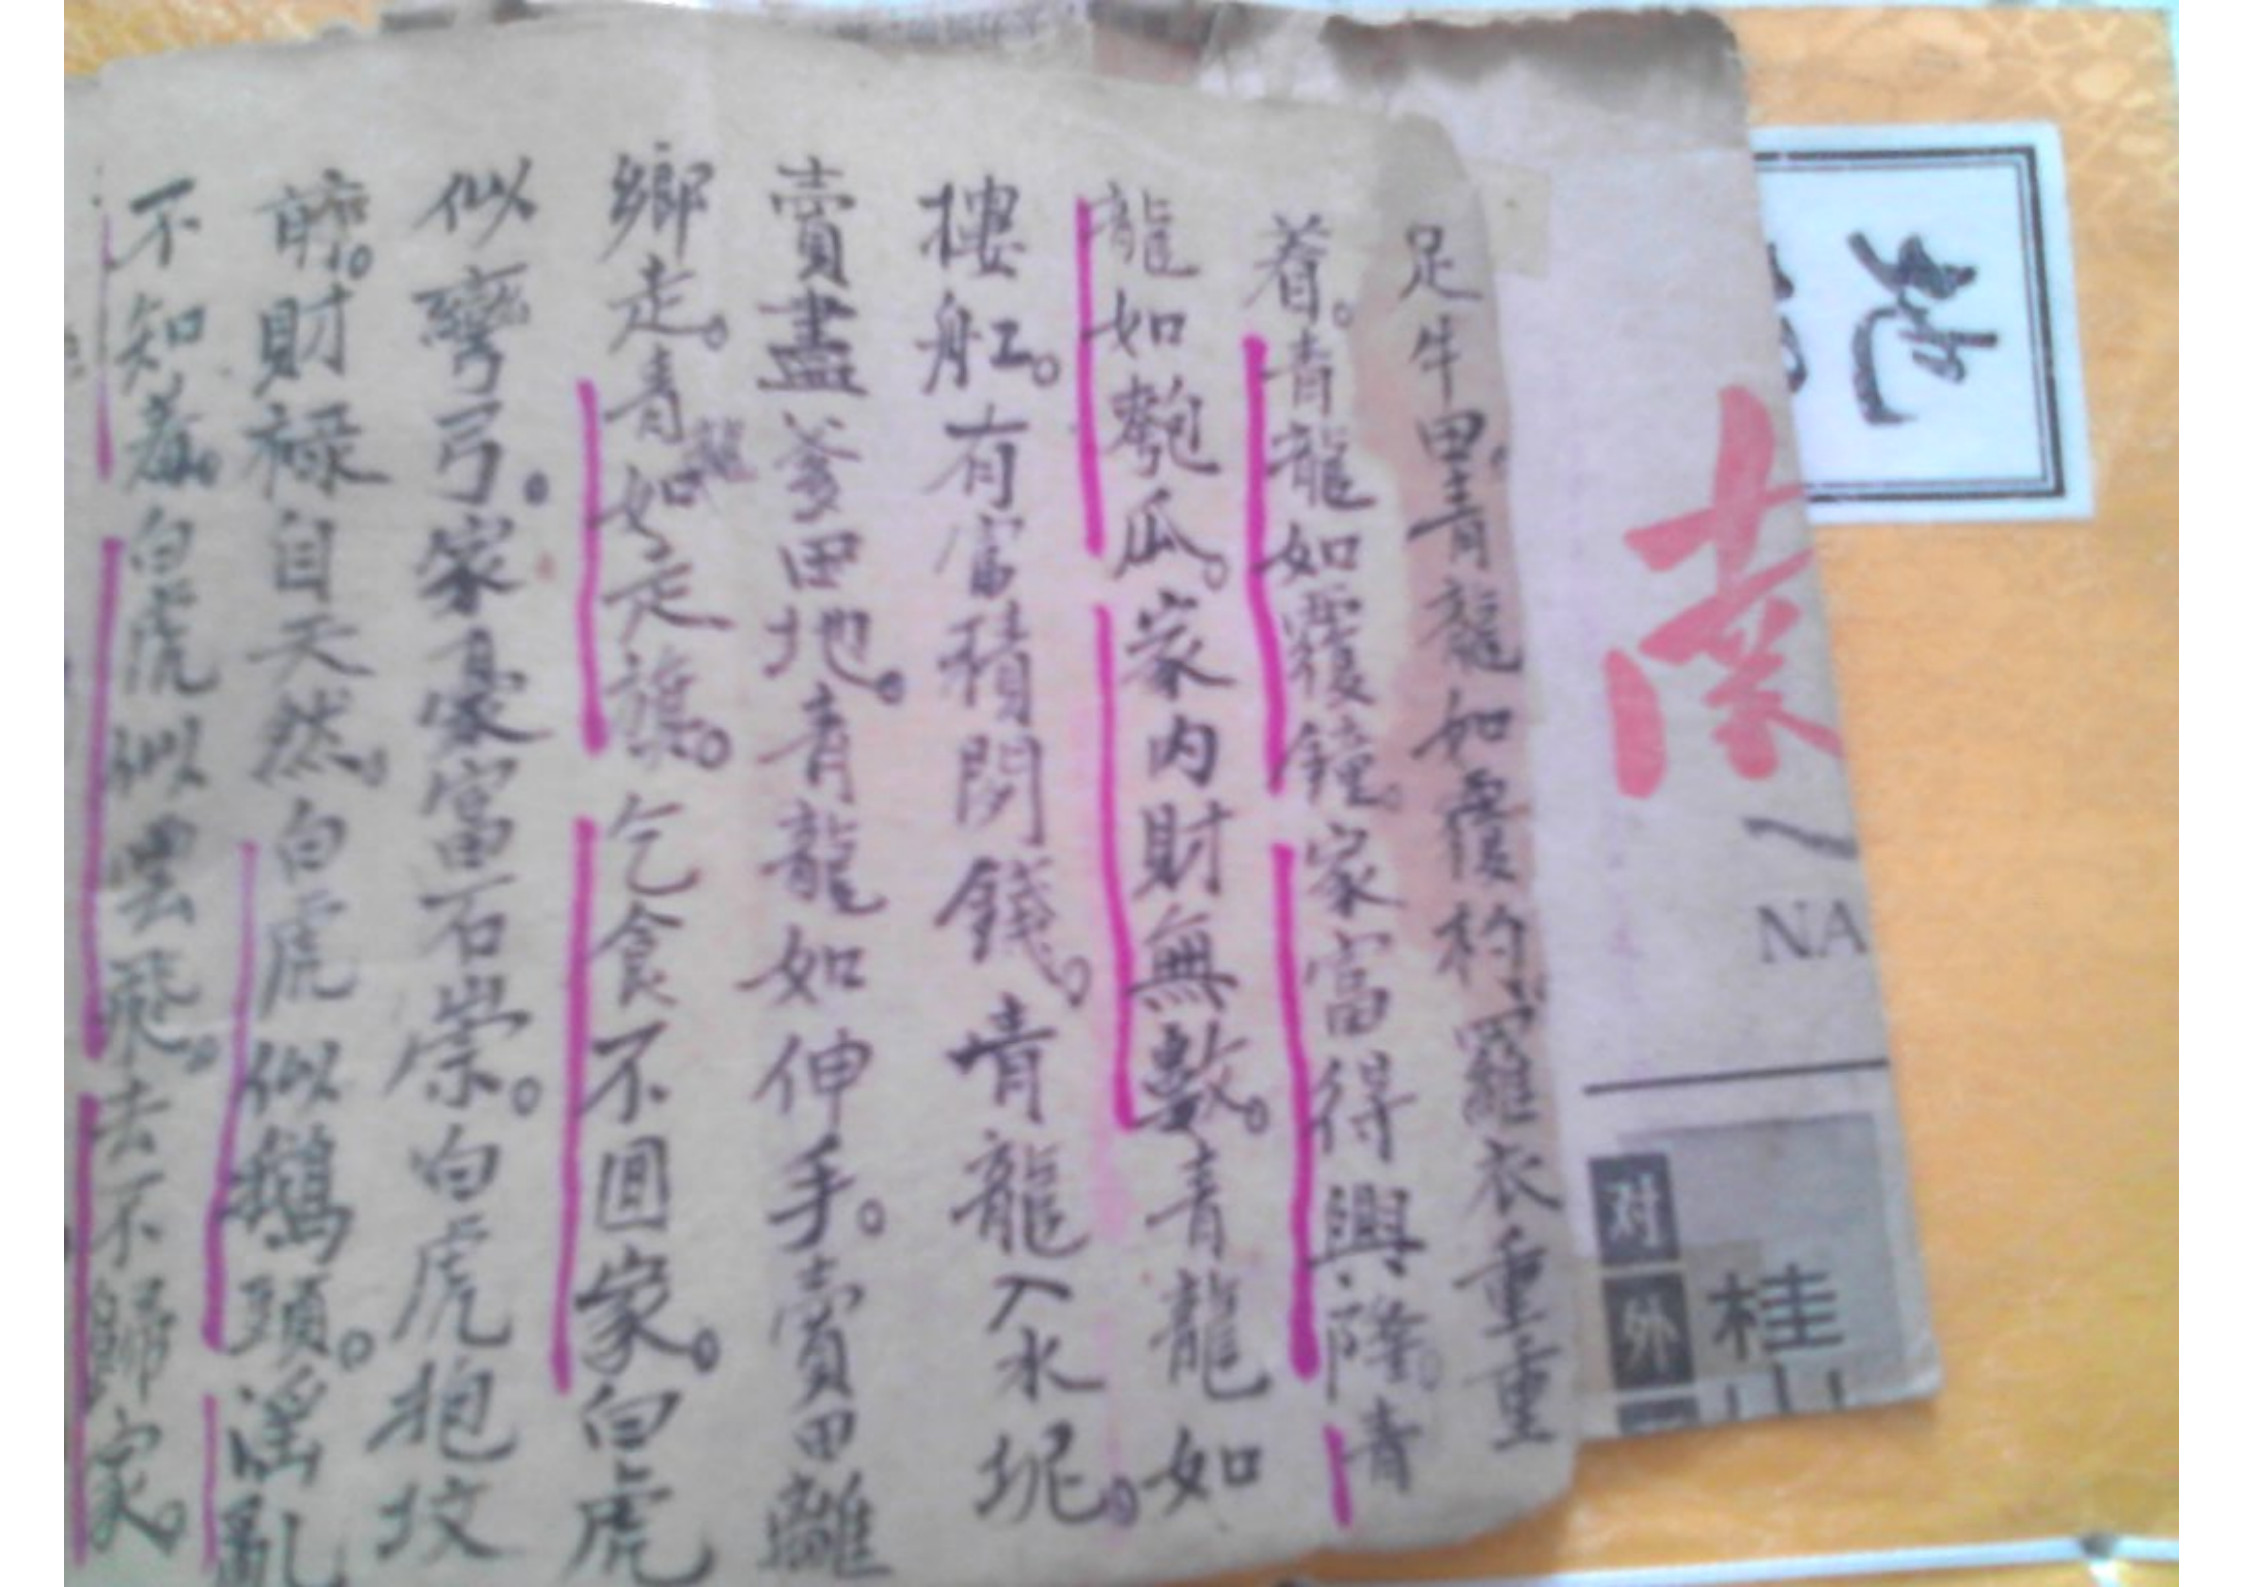 足牛田。青龍如覆杓。羅衣重重
着。青龍如覆鐘。家富得興隆。青
龍如匏瓜。家内財無數。青龍如
樓舡。有富積閑錢。青龍入水坭。
賣盡爹田地。青龍如伸手。賣田離
鄉走。青龍如走旗。乞食不囬家。白虎
似彎弓。家有家富石崇。白虎抱坟
前。財禄自天然。白虎似鵝頭。淫亂
不知羞。白虎似雲飛。去不歸家。
地
南
NA
对
外
桂